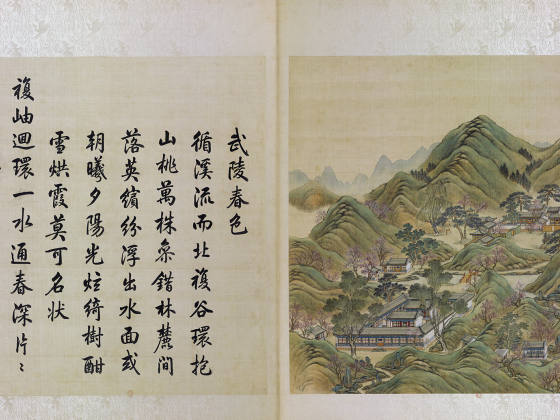 武陵春色
循溪流而北複谷環抱
山桃萬株參錯林麓間
落英繽紛浮出水面或
朝曦夕陽光炫綺樹酣
雪烘霞莫可名狀
複岫迴環一水通春深片〻